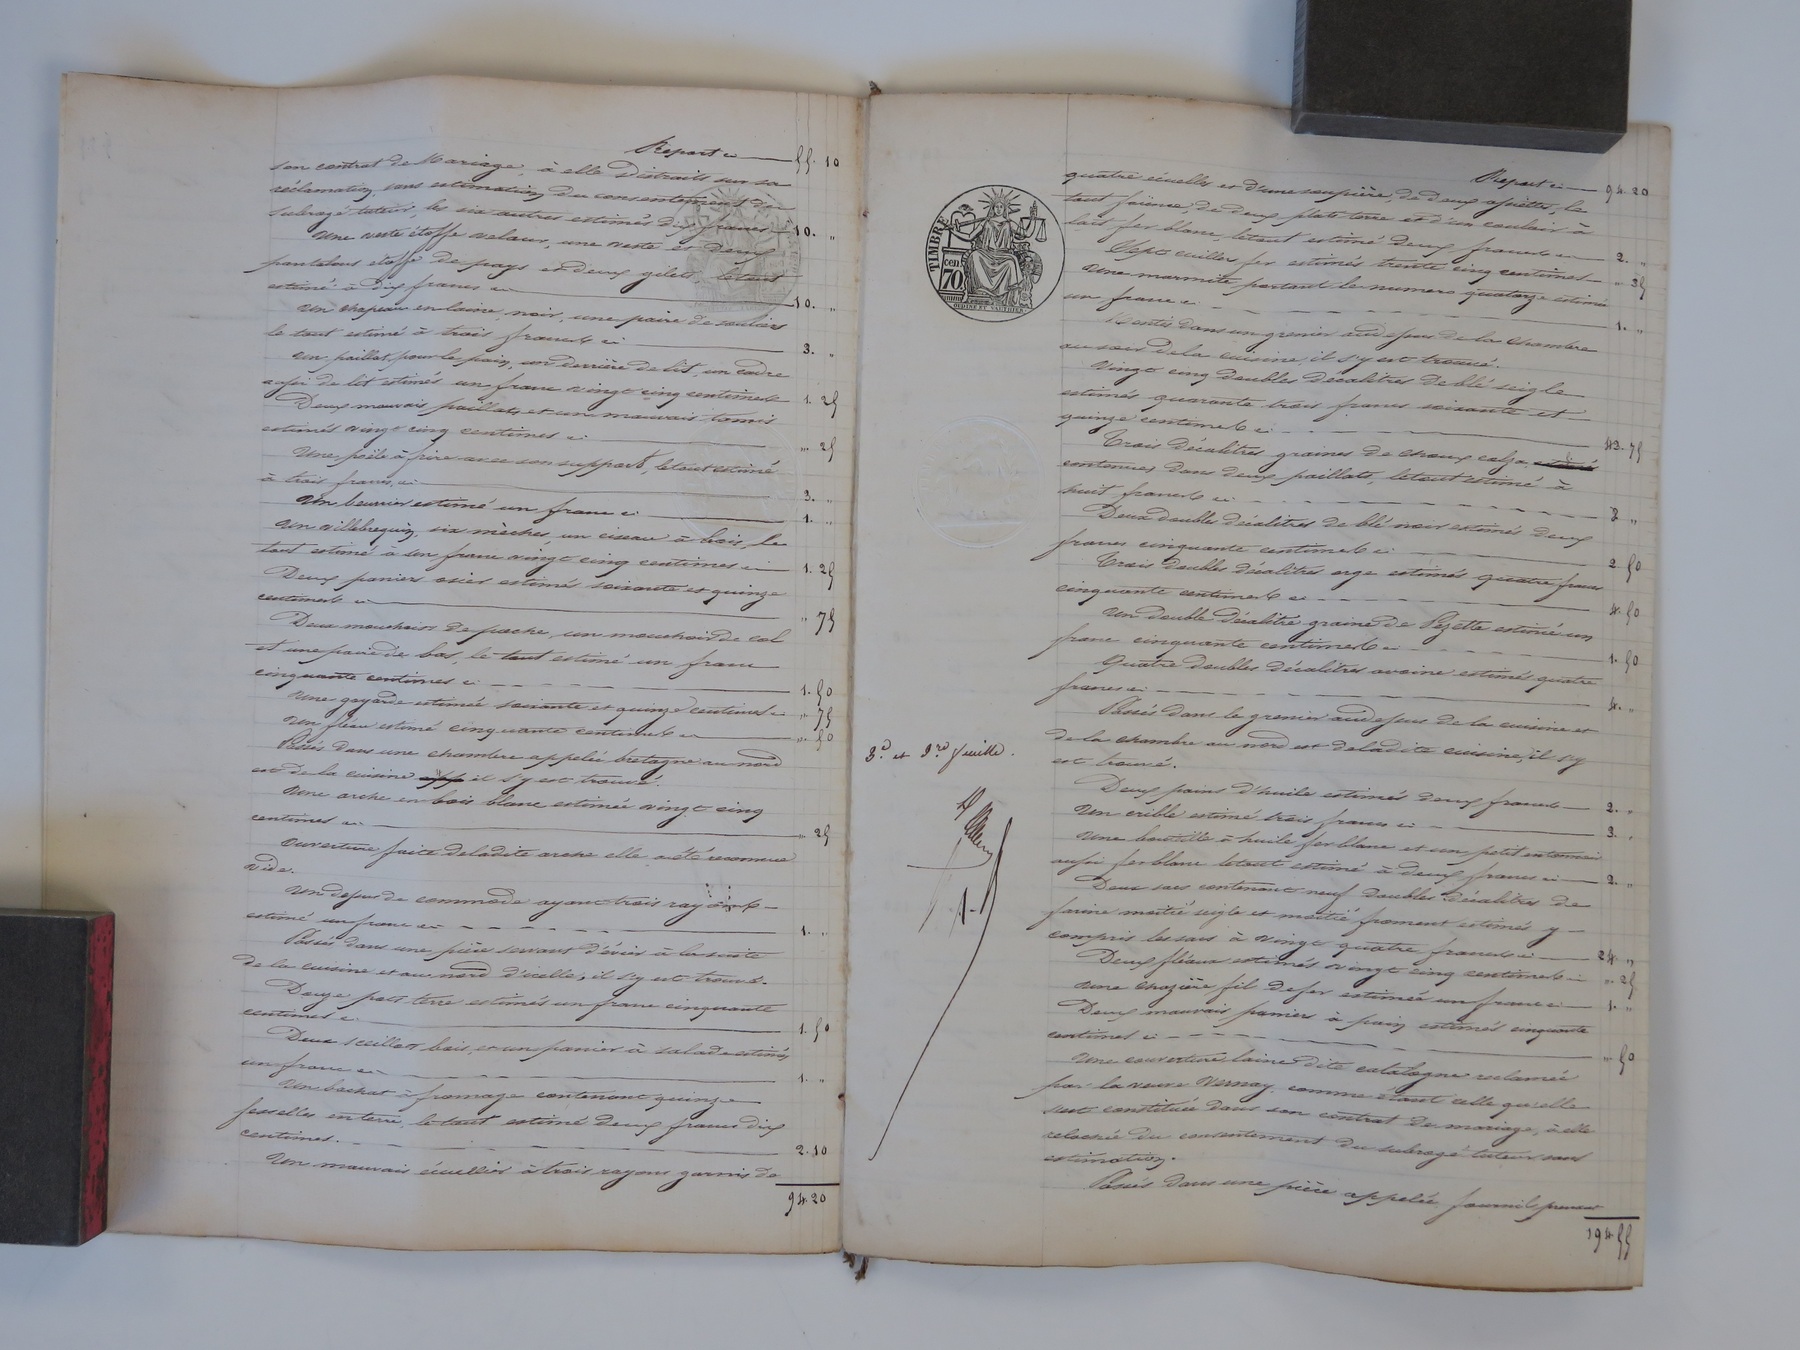 Report ci 55. 10
son contrat de Mariage, à elle distraits sur sa
réclamation, sans estimation du consentement du
subrogé tuteur, les six autres estimés dix francs 10. "
Une veste étoffe velours, une veste et deux
pantalons étoffe de pays et deux gilets le tout
estimé à dix francs ci 10. "
Un chapeau en laine noir, une paire de souliers
le tout estimé à trois francs ci 3. "
Un paillat pour le pain, un derrière de lit, un cadre
aussi de lit estimés un franc vingt cinq centimes 1. 25
Deux mauvais paillats et un mauvais tamis
estimés vingt cinq centimes ci " 25
Une poële à frire avec son support, le tout estimé
à trois francs, ci 3. "
Un beurrier estimé un franc ci 1. "
Un villebrequin, six mèches, un ciseau à bois, le
tout estimé à un franc vingt cinq centimes ci 1. 25
Deux paniers osier estimés soixante et quinze
centimes ci " 75
Deux mouchoirs de poche, un mouchoir de col
et une paire de bas, le tout estimé un franc
cinquante centimes ci 1. 50
Une goyarde estimée soixante et quinze centimes ci " 75
Un fléau estimé cinquante centimes ci " 50
Passés dans une chambre appelée bretagne au nord
est de la cuisine il s'y est trouvé.
Une arche en bois blanc estimée vingt cinq
centimes ci " 25
Ouverture faite de ladite arche elle a été reconnue
vide.
Un dessus de commode ayant trois rayons
estimé un franc ci 1. "
Passés dans une pièce servant d'évier à la suite
de la cuisine et au nord d'icelle, il s'y est trouvé.
Douze pots terre estimés un franc cinquante
centimes ci 1. 50
Deux seilles bois, et un panier à salade estimés
un franc ci 1. "
Un bachat à fromage contenant quinze
faisselles en terre, le tout estimé deux francs dix
centimes. 2. 10
Un mauvais écuellier à trois rayons garnis de
94. 20
Report ci 94. 20
TIMBRE
cen
70
OUDINÉ ET VAUTHIER
quatre écuelles et d'une soupière, de deux assiettes, le
tout faïence, de deux plats terre et d'un couloir à
lait fer blanc, le tout estimé deux francs ci 2. "
Sept cuillers fer estimés trente cinq centimes " 35
Une marmite portant le numéro quatorze estimée
un franc ci 1. "
Montés dans un grenier au dessus de la chambre
au soir de la cuisine, il s'y est trouvé.
Vingt cinq doubles décalitres de blé seigle
estimés quarante trois francs soixante et
quinze centimes ci 43. 75
Trois décalitres graines de choux colza
contenues dans deux paillats, le tout estimé à
huit francs ci 8 "
Deux doubles décalitres de blé noir estimés deux
francs cinquante centimes ci 2 50
Trois doubles décalitres orge estimés quatre francs
cinquante centimes ci 4. 50
Un double décalitre graine de Pezette estimé un
franc cinquante centimes ci 1. 50
Quatre doubles décalitres avoine estimés quatre
francs ci 4. "
Passés dans le grenier au dessus de la cuisine et
de la chambre au nord est de ladite cuisine, il s'y
est trouvé.
3.e et dre feuille.
Deux pains d'huile estimés deux francs 2. "
Un crible estimé trois francs ci 3. "
Une bouteille à huile fer blanc et un petit entonnoir
aussi fer blanc le tout estimé à deux francs ci 2. "
Deux sacs contenants neuf doubles décalitres de
farine moitié seigle et moitié froment estimés y
compris les sacs à vingt quatre francs ci 24. "
Deux fléaux estimés vingt cinq centimes " 25
Une chazière fil de fer estimée un franc ci 1. "
Deux mauvais paniers à pain estimés cinquante
centimes ci " 50
Une couverture laine dite catalogne réclamée
par la veuve Vernay comme étant celle qu'elle
s'est constituée dans son contrat de mariage, à elle
relachée du consentement du subrogé tuteur sans
estimation.
Passés dans une pièce appelée fournil prenant
194 55